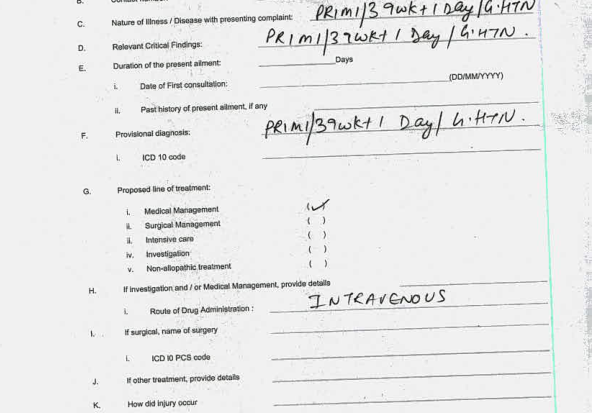 B.
C. Nature of Illness / Disease with presenting complaint: PRIMI/39wk+1 Day/G.HTN
D. Relevant Critical Findings: PRIMI/39wk+1 Day/G.HTN.
E. Duration of the present ailment: Days
i. Date of First consultation: (DD/MM/YYYY)
ii. Past history of present ailment, if any
F. Provisional diagnosis: PRIMI/39wk+1 Day/G.HTN.
i. ICD 10 code
G. Proposed line of treatment:
i. Medical Management (✓)
ii. Surgical Management ( )
ii. Intensive care ( )
iv. Investigation ( )
v. Non-allopathic treatment ( )
H. If Investigation and / or Medical Management, provide details
i. Route of Drug Administration : INTRAVENOUS
I. If surgical, name of surgery
i. ICD I0 PCS code
J. If other treatment, provide details
K. How did injury occur